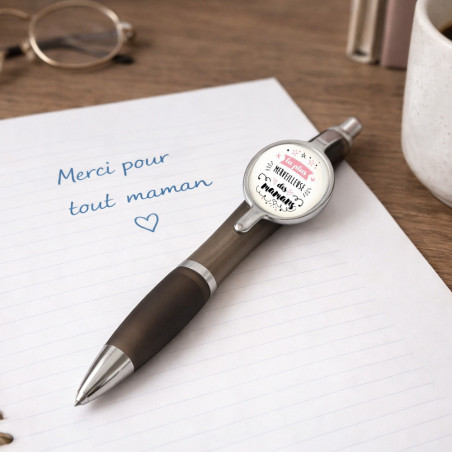 Merci pour
tout maman
la plus
MERVEILLEUSE
des
mamans